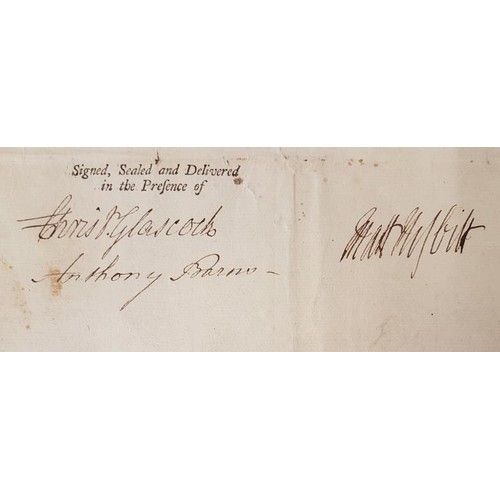 Signed, Sealed and Delivered
in the Preſence of
Chris.r Glascock
Anthony Barns
Matt Nesbitt